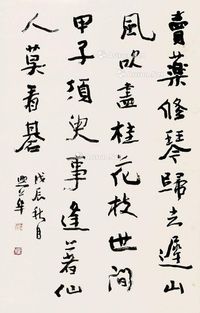 賣藥修琴歸去遲山
風吹盡桂花枝世間
甲子須臾事逢著仙
人莫看碁
戊辰秋月